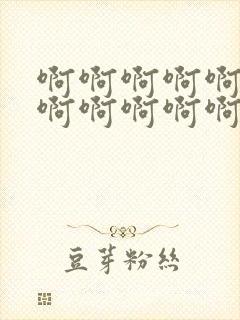 啊啊啊啊啊
啊啊啊啊啊
豆芽粉丝